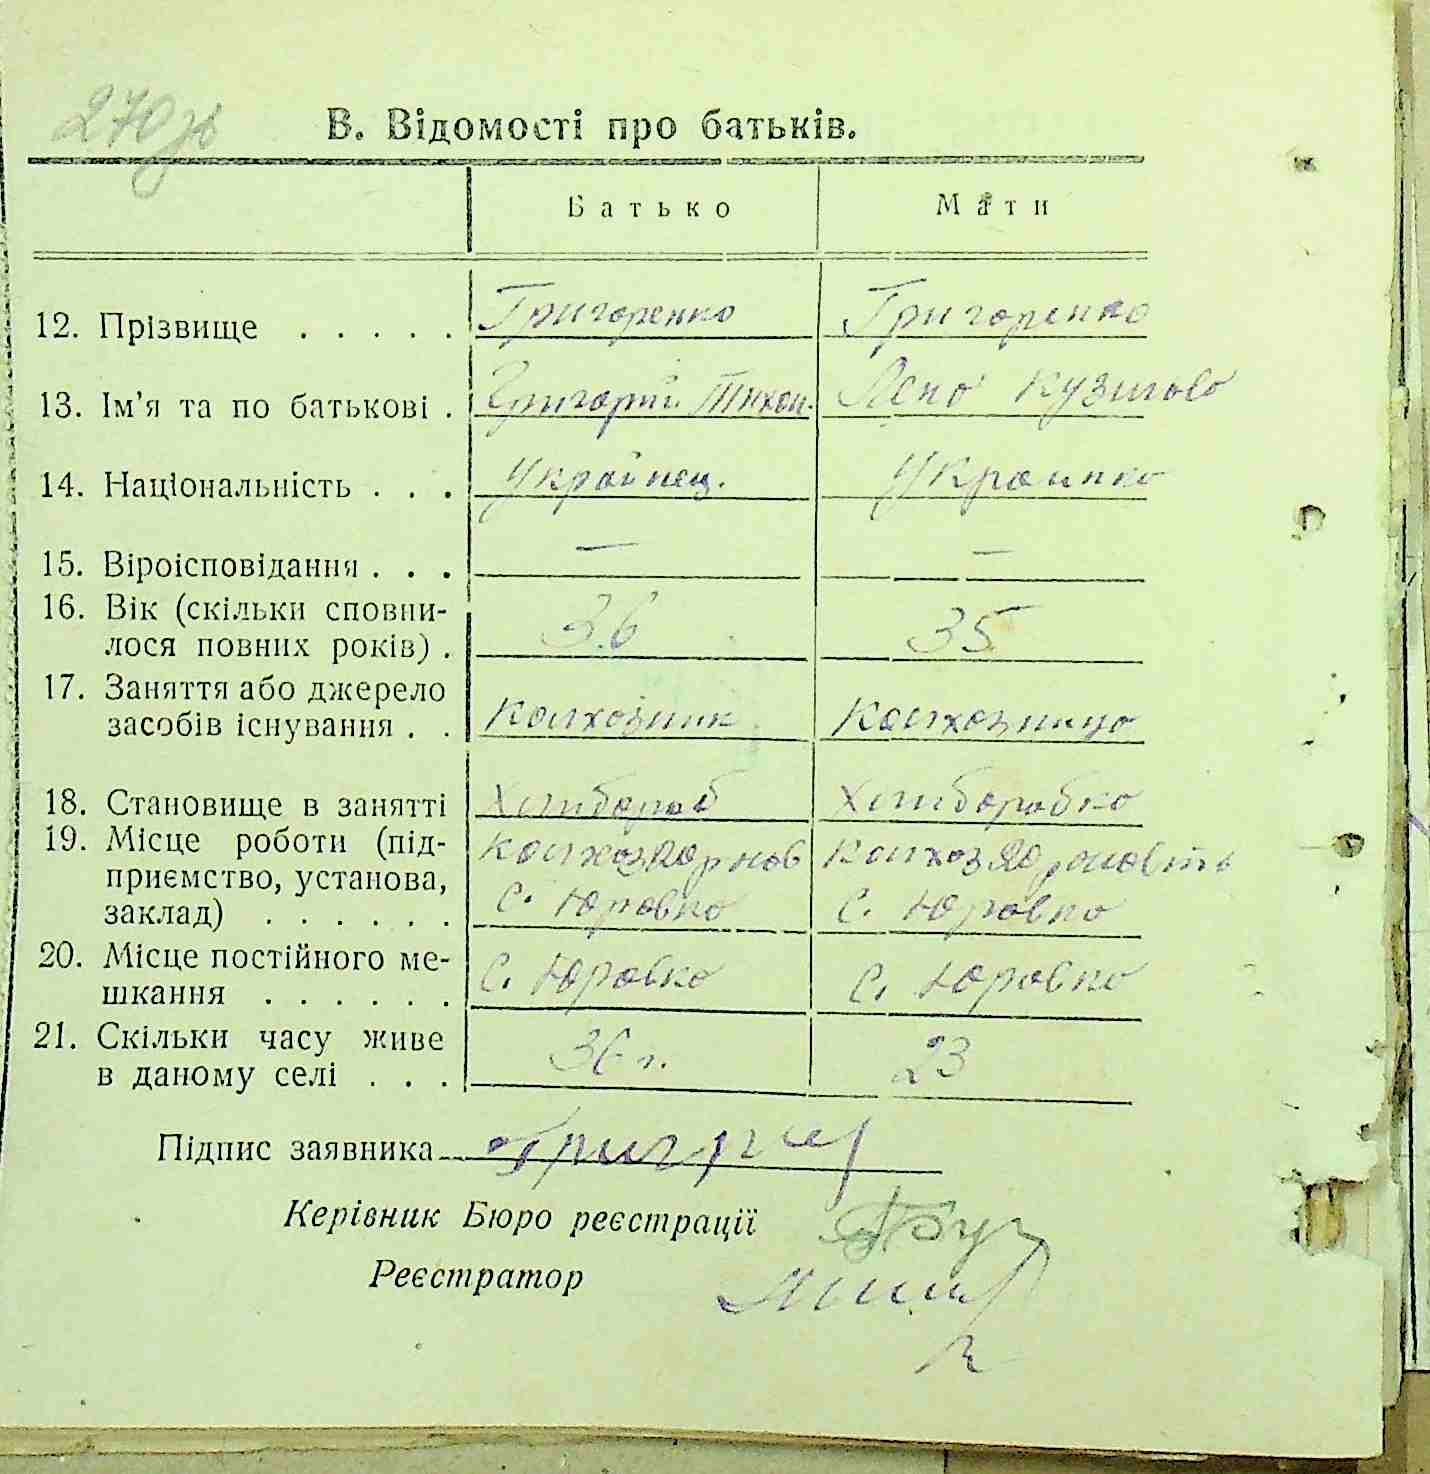 270зв
В. Відомості про батьків.
Батько Мати
12. Прізвище . . . . . Григоренко Григоренко
13. Ім'я та по батькові . Григорій Тихон. Кузмово
14. Національність . . . Українец. Украинко
15. Віроісповідання . . . — —
16. Вік (скільки сповни-
лося повних років) . 36 35
17. Заняття або джерело
засобів існування . . Колхозник Колхозницо
18. Становище в занятті Хлибороб Хлиборобко
19. Місце роботи (під- Колхоз Колхоз
приємство, установа,
заклад) . . . . . . с. Юровко с. Юровко
20. Місце постійного ме- с. Юровко с. Юровко
шкання . . . . . .
21. Скільки часу живе
в даному селі . . . 36 г. 23
Підпис заявника
Керівник Бюро реєстрації
Реєстратор